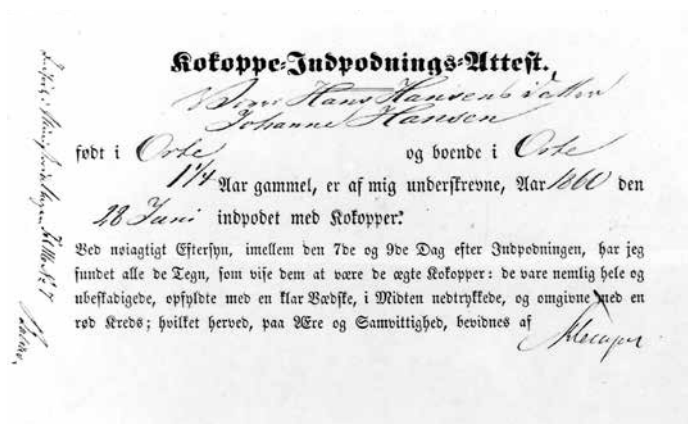 Kokoppe-Indpodnings-Attest.
Hans Hansens Datter
Johanne Hansen
født i Orte og boende i Orte
1 1/4 Aar gammel, er af mig underskrevne, Aar 1860 den
28 Juni indpodet med Kokopper.
Ved nøiagtigt Eftersyn, imellem den 7de og 9de Dag efter Indpodningen, har jeg
fundet alle de Tegn, som vise dem at være de ægte Kokopper: de vare nemlig hele og
ubeskadigede, opfyldte med en klar Vædske, i Midten nedtrykkede, og omgivne med en
rød Kreds; hvilket herved, paa Ære og Samvittighed, bevidnes af